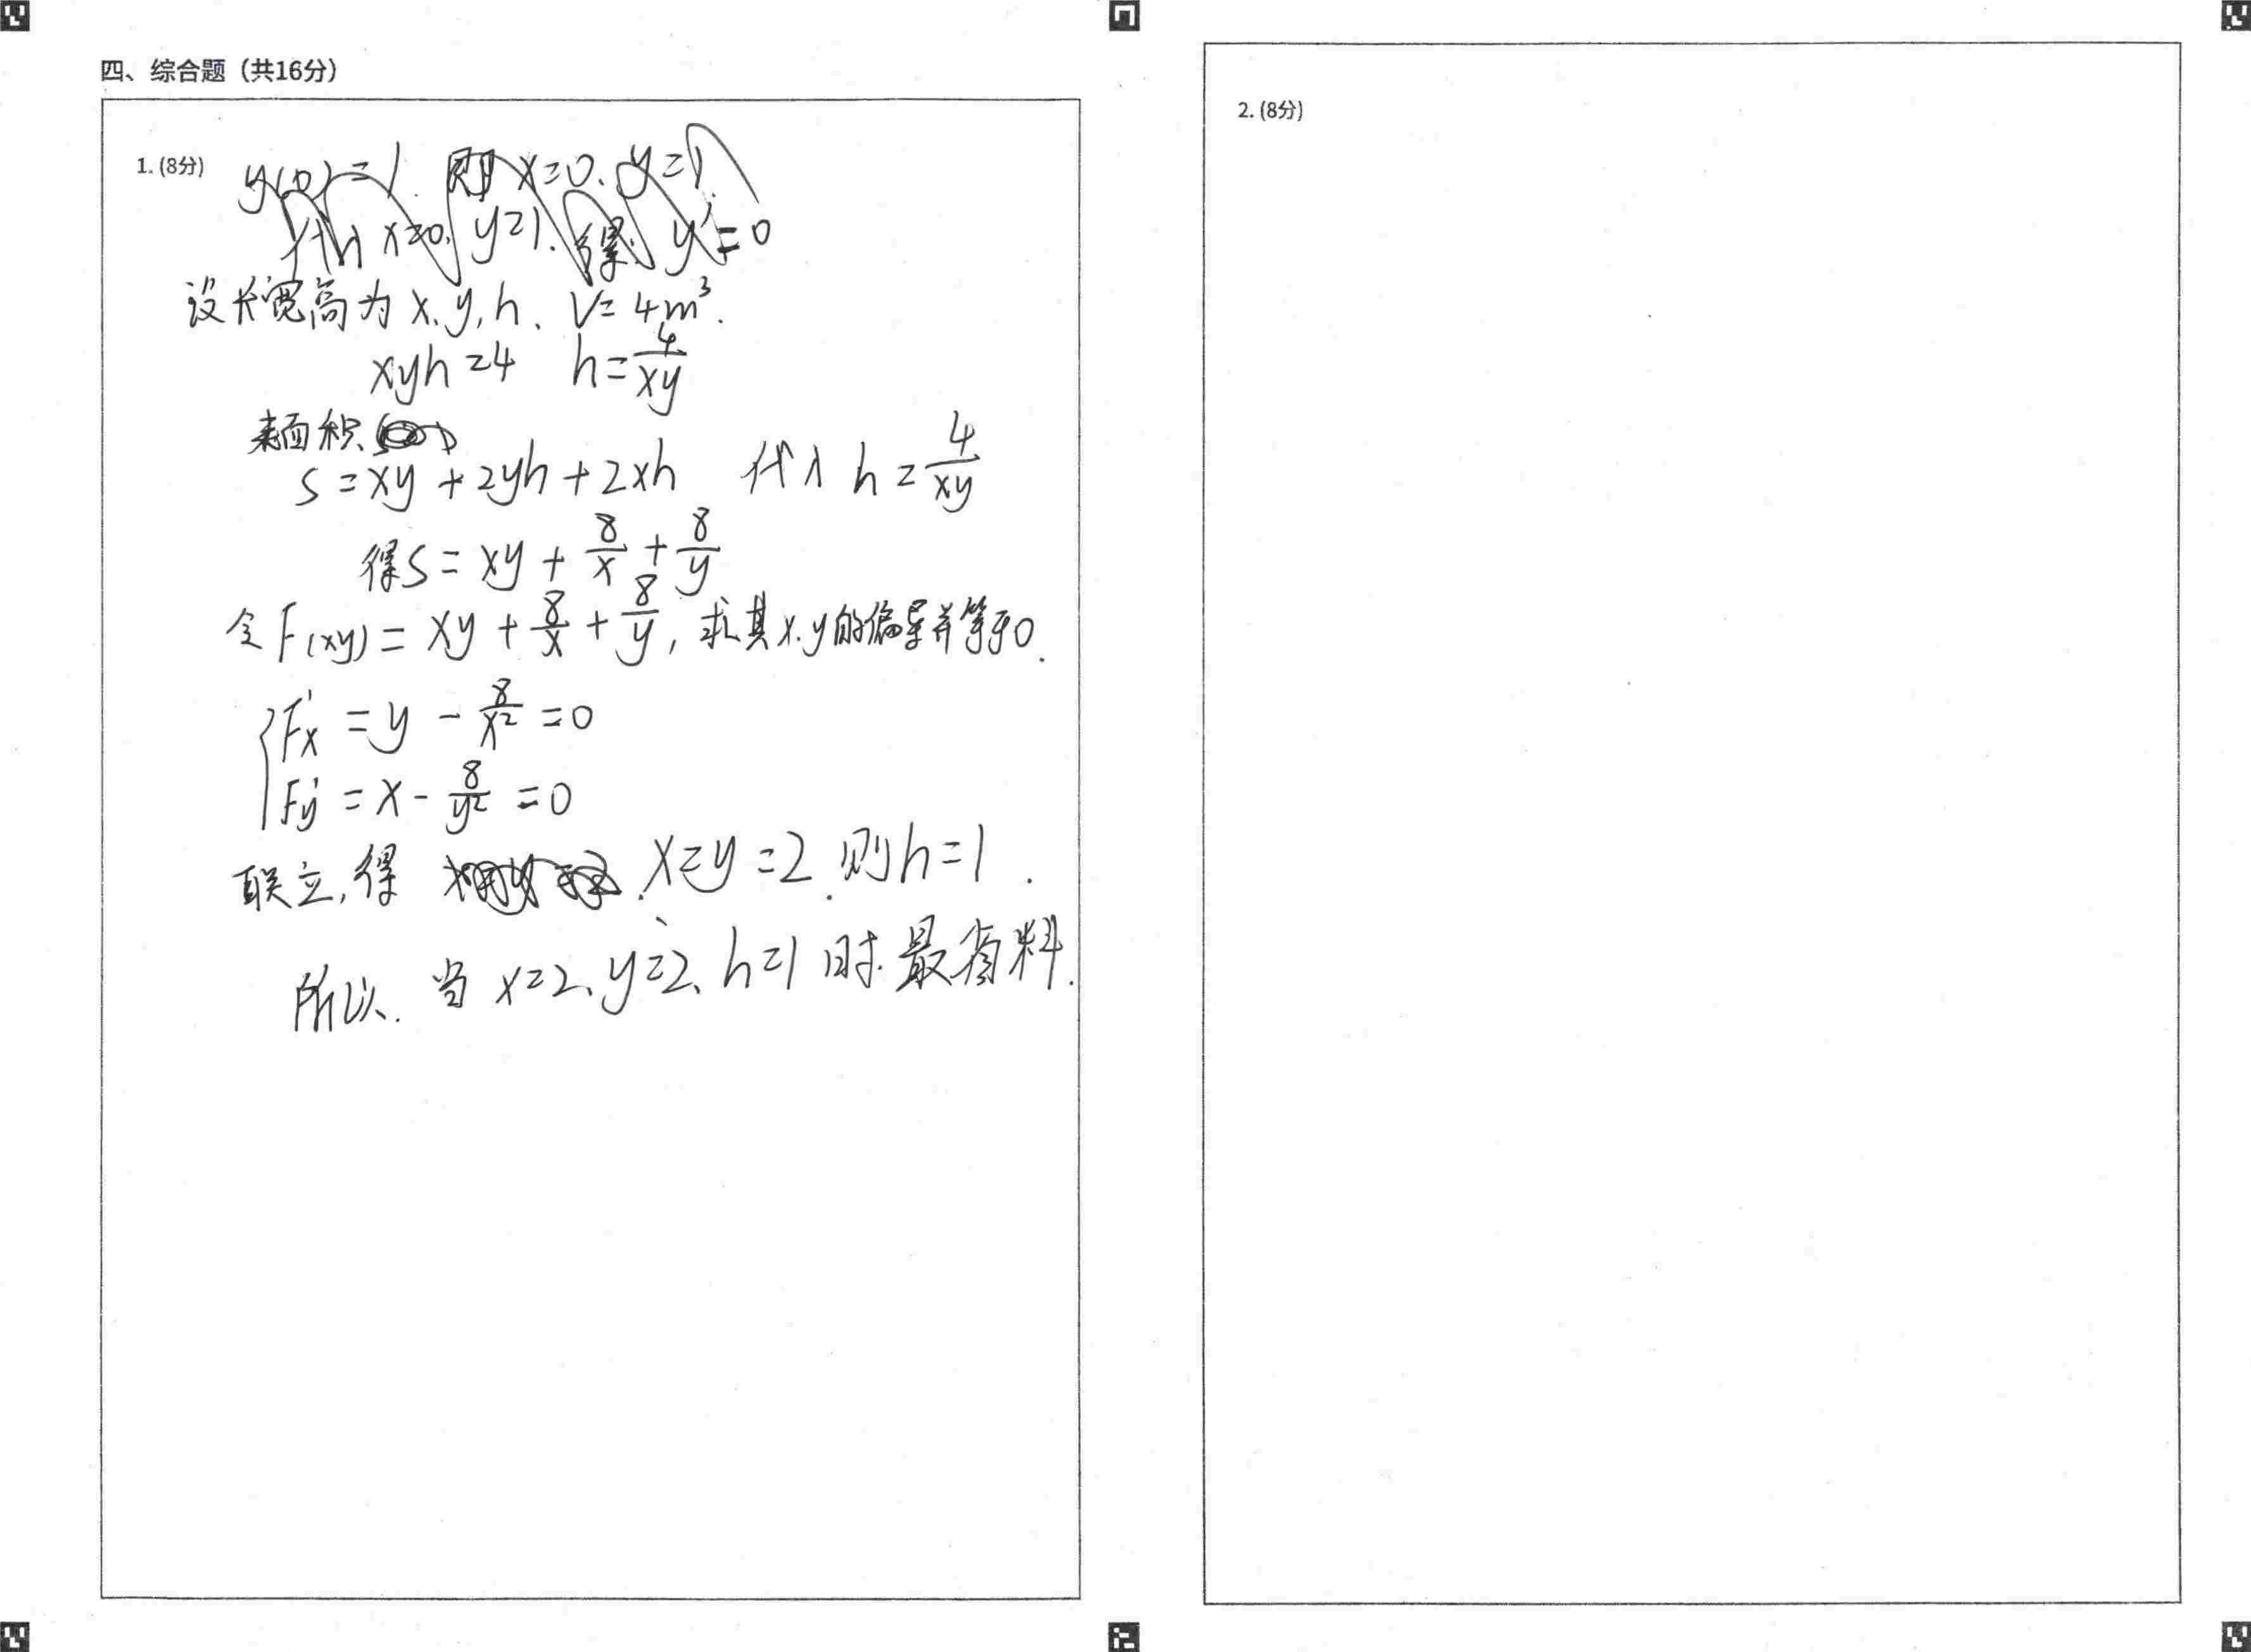 四、综合题（共16分）
1. (8分)
y(0)=1. 即 x=0. y=1.
代入 x=0, y=1. 得. y'=0
设长宽高为 x, y, h. V=4m³.
xyh=4 h=4/xy
表面积
S=xy+2yh+2xh 代入 h=4/xy
得S=xy+8/x+8/y
令F(xy)=xy+8/x+8/y, 求其x.y的偏导并等于0.
{ F'x=y-8/x²=0
F'y=x-8/y²=0
联立,得 x=y=2. 则h=1.
所以. 当 x=2, y=2, h=1 时. 最省料.
2. (8分)